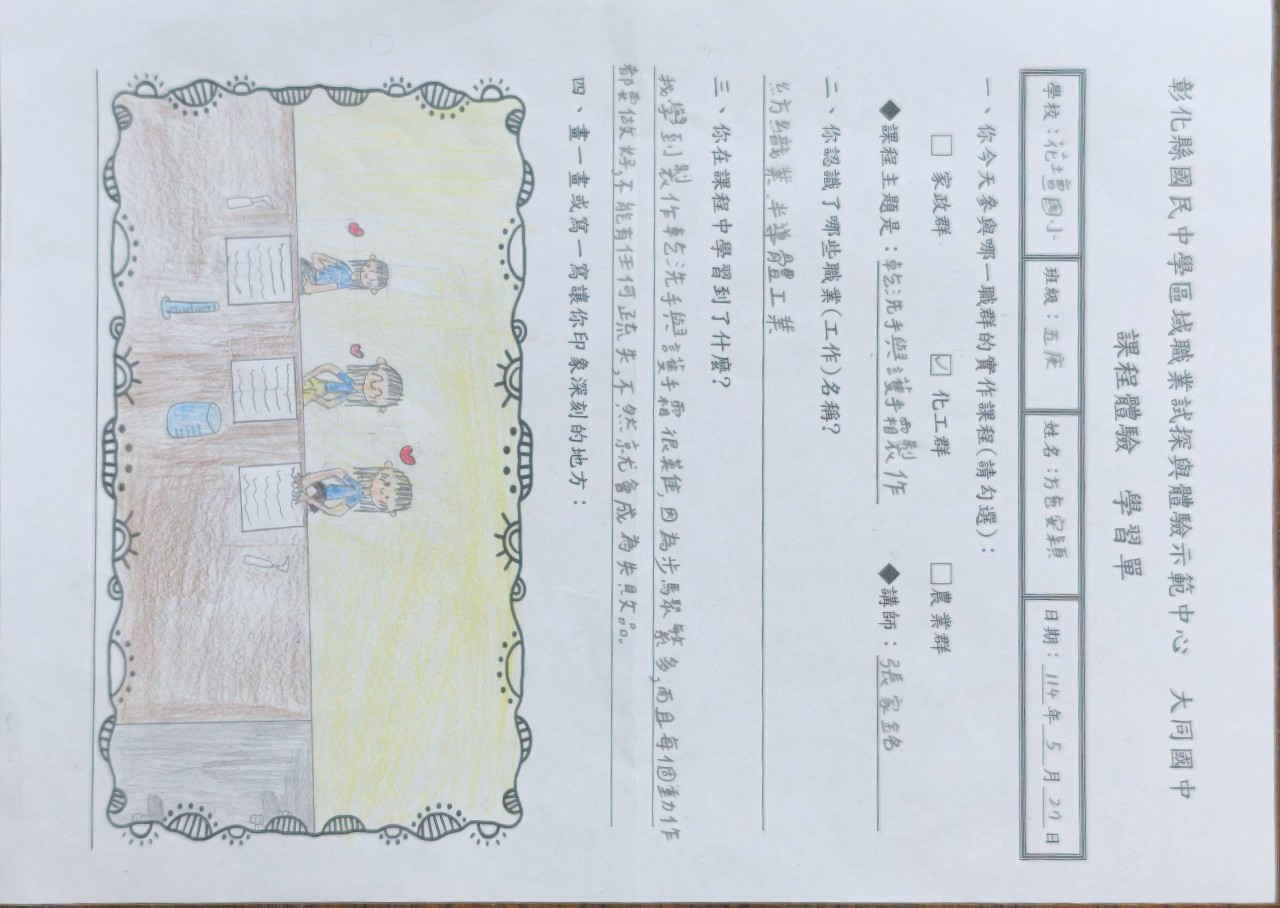 彰化縣國民中學區域職業試探與體驗示範中心 大同國中
課程體驗 學習單
學校：花壇國小 班級：五庚 姓名：方苞安穎 日期：114年5月27日
一、你今天參與哪一職群的實作課程(請勾選)：
□ 家政群 ☑ 化工群 □ 農業群
◆課程主題是：乾洗手與護手霜製作 ◆講師：張家銘
二、你認識了哪些職業(工作)名稱？
紡織業、半導體工業
三、你在課程中學習到了什麼？
我學到製作乾洗手與護手霜很難，因為步驟繁多，而且每個動作
都要做好，不能有任何疏失，不然就會成為失敗品。
四、畫一畫或寫一寫讓你印象深刻的地方：